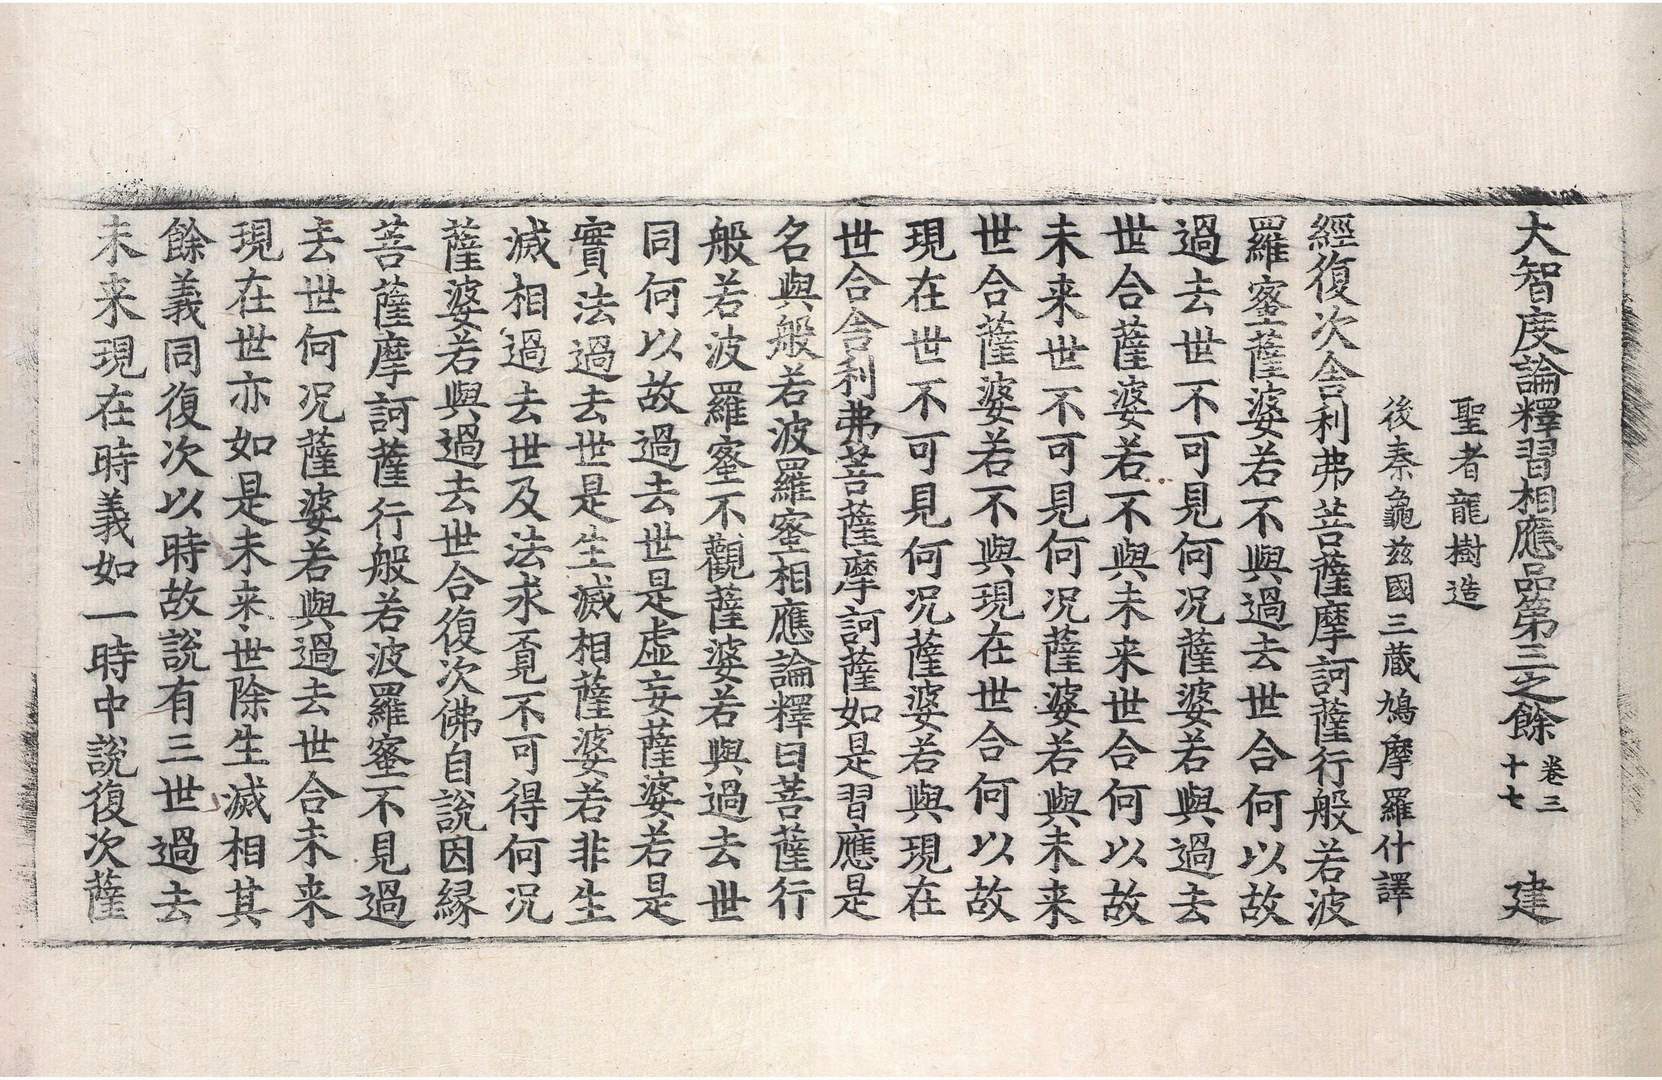 大智度論釋習相應品第三之餘 卷三十七 建
聖者龍樹造
後秦龜茲國三藏鳩摩羅什譯
經復次舍利弗菩薩摩訶薩行般若波
羅蜜薩婆若不與過去世合何以故
過去世不可見何况薩婆若與過去
世合薩婆若不與未来世合何以故
未来世不可見何况薩婆若與未来
世合薩婆若不與現在世合何以故
現在世不可見何况薩婆若與現在
世合舍利弗菩薩摩訶薩如是習應是
名與般若波羅蜜相應論釋曰菩薩行
般若波羅蜜不觀薩婆若與過去世
同何以故過去世是虛妄薩婆若是
實法過去世是生滅相薩婆若非生
滅相過去世及法求覔不可得何况
薩婆若與過去世合復次佛自說因緣
菩薩摩訶薩行般若波羅蜜不見過
去世何况薩婆若與過去世合未来
現在世亦如是未来世除生滅相其
餘義同復次以時故說有三世過去
未来現在時義如一時中說復次薩